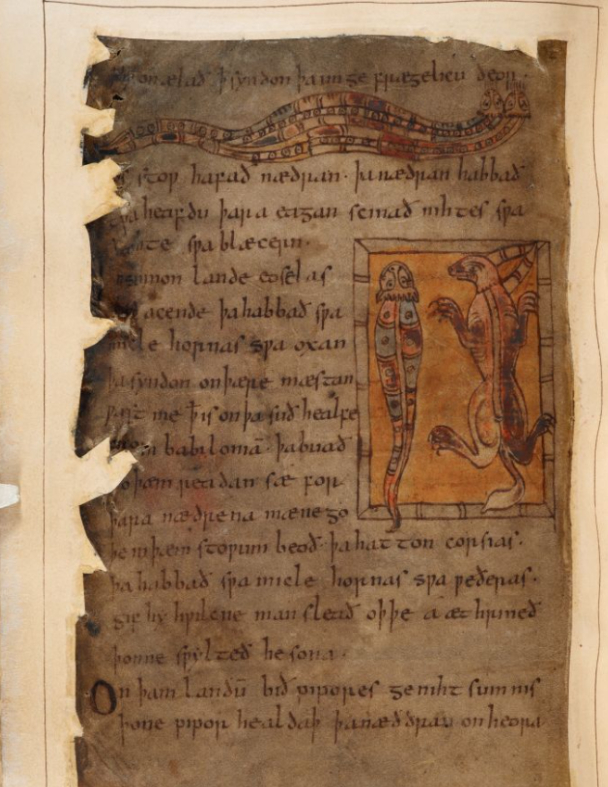 onælað ꝥ syndon þa un ge frægelicu deor·
stoƿ hafað nædran· þa nædran habbað
heafdu þara eagan scinað nihtes sƿa
sƿa blæcern·
lande eoselas
acende þa habbað sƿa
micle hornas sƿa oxan
þa syndon on þære mæstan
ꝥ is on þa suð healfe
babiloniā· þa buað
þæm readan sæ for
þara nædrena mænego
þe in þæm stoƿum beoð· þa hatton corsias·
þa habbað sƿa micle hornas sƿa ƿeðeras·
gif hy hƿilcne man sleað oþþe a æthrineð
þonne sƿylteð he sona·
On þam landū bið pipores geniht sumnis
þone pipor healdaþ þa næddran on heora